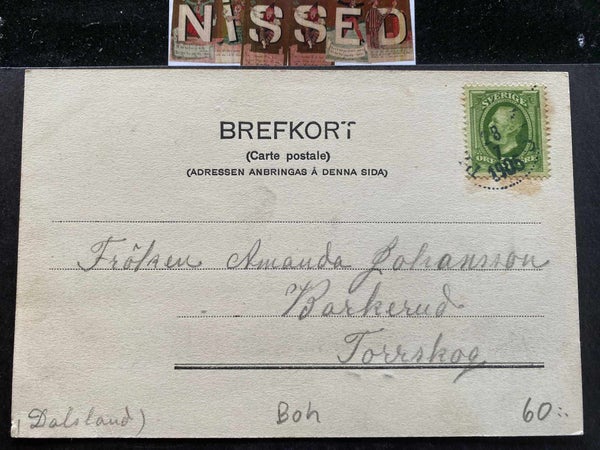 NiSSED
BREFKORT
(Carte postale)
(ADRESSEN ANBRINGAS Å DENNA SIDA)
SVERIGE
8
1905
Fröken Amanda Johansson
Barkerud
Torrskog
Dalsland)
Boh
60:-